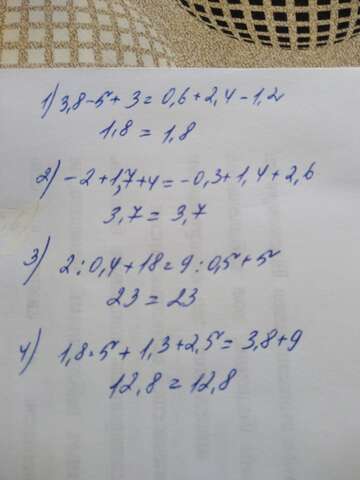 1) 3,8-5+3=0,6+2,4-1,2
1,8=1,8
2) -2+1,7+4=-0,3+1,4+2,6
3,7=3,7
3) 2:0,4+18=9:0,5+5
23=23
4) 1,8·5+1,3+2,5=3,8+9
12,8=12,8